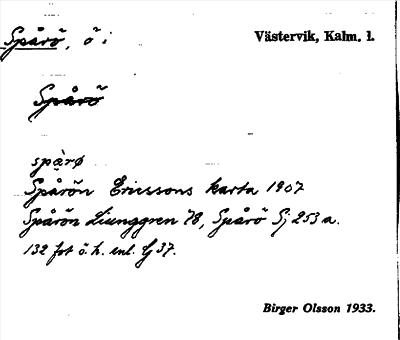 Spårö, ö i Västervik, Kalm. l.
Spårö
spàrø
Spårön Ericssons karta 1907
Spårön Ljunggren 78, Spårö Sj 253 a.
132 fot ö. h. enl. Gj 37.
Birger Olsson 1933.